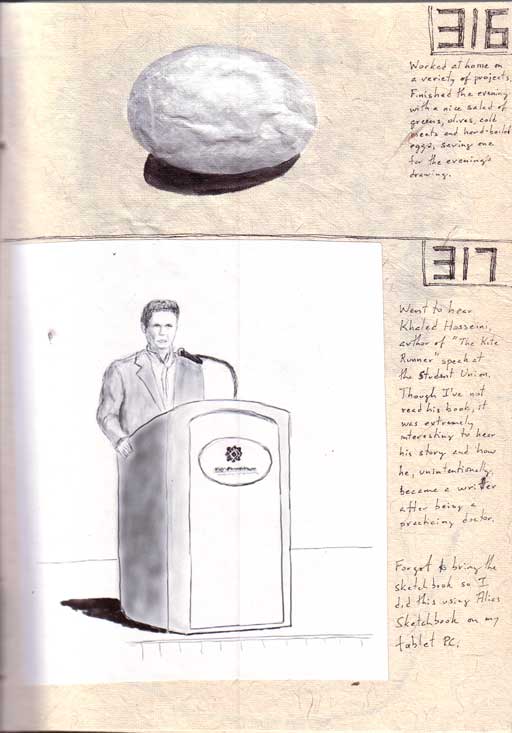 316
Worked at home on
a variety of projects.
Finished the evening
with a nice salad of
greens, olives, cold
meats and hard-boiled
eggs, saving one
for the evening's
drawing.
317
Went to hear
Khaled Hosseini,
author of "The Kite
Runner" speak at
the Student Union.
Though I've not
read his book, it
was extremely
interesting to hear
his story and how
he, unintentionally,
became a writer
after being a
practicing doctor.
Forgot to bring the
sketchbook so I
did this using Alias
Sketchbook on my
tablet PC.